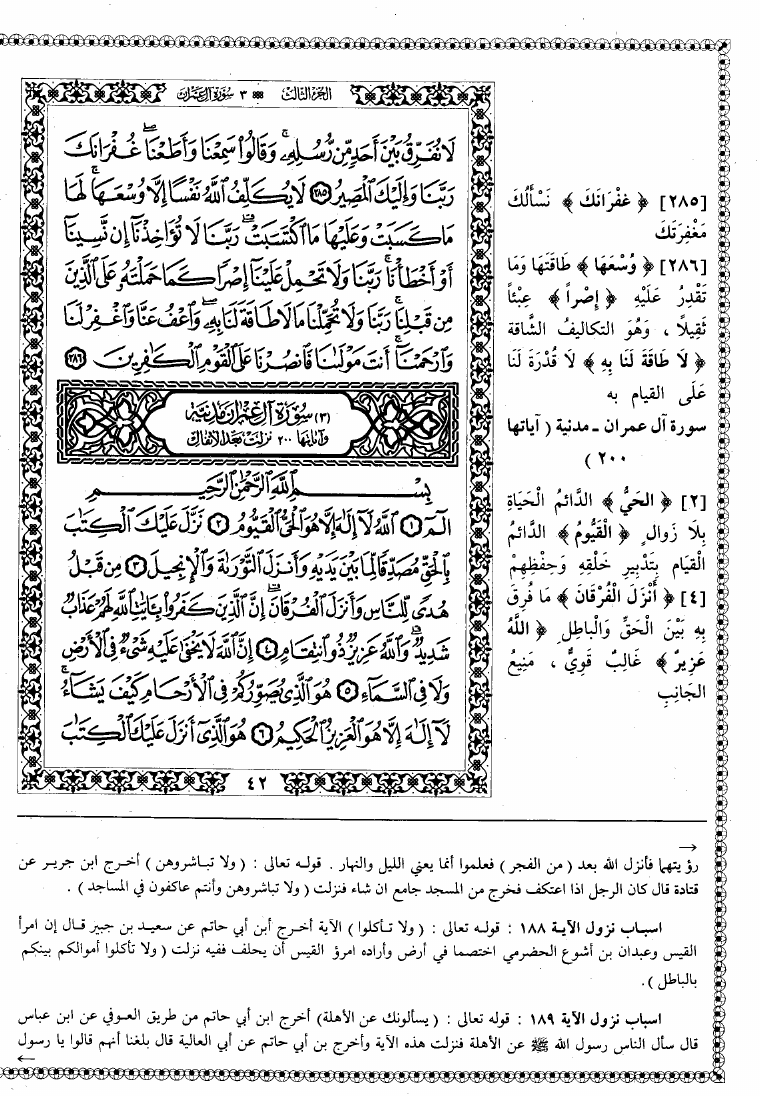 الجزء الثالث ٣ سورة آل عمران
لَا نُفَرِّقُ بَيْنَ أَحَدٍ مِّن رُّسُلِهِۦ ۚ وَقَالُوا۟ سَمِعْنَا وَأَطَعْنَا ۖ غُفْرَانَكَ
رَبَّنَا وَإِلَيْكَ ٱلْمَصِيرُ ٢٨٥ لَا يُكَلِّفُ ٱللَّهُ نَفْسًا إِلَّا وُسْعَهَا ۚ لَهَا
مَا كَسَبَتْ وَعَلَيْهَا مَا ٱكْتَسَبَتْ ۗ رَبَّنَا لَا تُؤَاخِذْنَآ إِن نَّسِينَآ
أَوْ أَخْطَأْنَا ۚ رَبَّنَا وَلَا تَحْمِلْ عَلَيْنَآ إِصْرًا كَمَا حَمَلْتَهُۥ عَلَى ٱلَّذِينَ
مِن قَبْلِنَا ۚ رَبَّنَا وَلَا تُحَمِّلْنَا مَا لَا طَاقَةَ لَنَا بِهِۦ ۖ وَٱعْفُ عَنَّا وَٱغْفِرْ لَنَا
وَٱرْحَمْنَآ ۚ أَنتَ مَوْلَىٰنَا فَٱنصُرْنَا عَلَى ٱلْقَوْمِ ٱلْكَٰفِرِينَ ٢٨٦
(٣) سورة آل عمران مدنية
وآياتها ٢٠٠ نزلت بعد الأنفال
بِسْمِ ٱللَّهِ ٱلرَّحْمَٰنِ ٱلرَّحِيمِ
الٓمٓ ١ ٱللَّهُ لَآ إِلَٰهَ إِلَّا هُوَ ٱلْحَىُّ ٱلْقَيُّومُ ٢ نَزَّلَ عَلَيْكَ ٱلْكِتَٰبَ
بِٱلْحَقِّ مُصَدِّقًا لِّمَا بَيْنَ يَدَيْهِ وَأَنزَلَ ٱلتَّوْرَىٰةَ وَٱلْإِنجِيلَ ٣ مِن قَبْلُ
هُدًى لِّلنَّاسِ وَأَنزَلَ ٱلْفُرْقَانَ ۗ إِنَّ ٱلَّذِينَ كَفَرُوا۟ بِـَٔايَٰتِ ٱللَّهِ لَهُمْ عَذَابٌ
شَدِيدٌ ۗ وَٱللَّهُ عَزِيزٌ ذُو ٱنتِقَامٍ ٤ إِنَّ ٱللَّهَ لَا يَخْفَىٰ عَلَيْهِ شَىْءٌ فِى ٱلْأَرْضِ
وَلَا فِى ٱلسَّمَآءِ ٥ هُوَ ٱلَّذِى يُصَوِّرُكُمْ فِى ٱلْأَرْحَامِ كَيْفَ يَشَآءُ ۚ
لَآ إِلَٰهَ إِلَّا هُوَ ٱلْعَزِيزُ ٱلْحَكِيمُ ٦ هُوَ ٱلَّذِىٓ أَنزَلَ عَلَيْكَ ٱلْكِتَٰبَ
٤٢
[٢٨٥] ﴿ غفْرَانَكَ ﴾ نَسْأَلُكَ
مَغْفِرَتَكَ
[٢٨٦] ﴿ وُسْعَهَا ﴾ طَاقَتَهَا وَمَا
تَقْدِرُ عَلَيْهِ ﴿ إِصْراً ﴾ عِبْئاً
ثَقِيلاً ، وَهُوَ التكاليفُ الشَّاقة
﴿ لاَ طَاقَةَ لَنَا بِهِ ﴾ لاَ قُدْرَةَ لَنَا
عَلَى القيام به
سورة آل عمران ـ مدنية ( آياتها
٢٠٠ )
[٢] ﴿ الحَيُّ ﴾ الدَّائمُ الْحَيَاةِ
بِلاَ زَوالٍ ﴿ الْقَيُّومُ ﴾ الدَّائمُ
الْقيَام بِتَدْبِيرِ خَلْقِهِ وَحِفْظِهِمْ
[٤] ﴿ أَنْزَلَ الْفُرْقَانَ ﴾ مَا فُرِقَ
بِهِ بَيْنَ الْحَقِّ وَالْبَاطِلِ ﴿ اللَّهُ
عَزِيزٌ ﴾ غَالِبٌ قَوِيٌّ ، مَنِيعُ
الْجَانِبِ
→
رؤيتهما فأنزل الله بعد ( من الفجر ) فعلموا أنما يعني الليل والنهار . قوله تعالى : ( ولا تباشروهن ) أخرج ابن جرير عن
قتادة قال كان الرجل اذا اعتكف فخرج من المسجد جامع ان شاء فنزلت ( ولا تباشروهن وأنتم عاكفون في المساجد ) .
اسباب نزول الآية ١٨٨ : قوله تعالى : ( ولا تأكلوا ) الآية أخرج أبن أبي حاتم عن سعيد بن جبير قال إن امرأ
القيس وعبدان بن أشوع الحضرمي اختصما في أرض وأراده امرؤ القيس أن يحلف ففيه نزلت ( ولا تأكلوا أموالكم بينكم
بالباطل ) .
اسباب نزول الآية ١٨٩ : قوله تعالى : ( يسألونك عن الأهلة) أخرج ابن أبي حاتم من طريق العوفي عن ابن عباس
قال سأل الناس رسول الله ﷺ عن الأهلة فنزلت هذه الآية وأخرج بن أبي حاتم عن أبي العالية قال بلغنا أنهم قالوا يا رسول
←